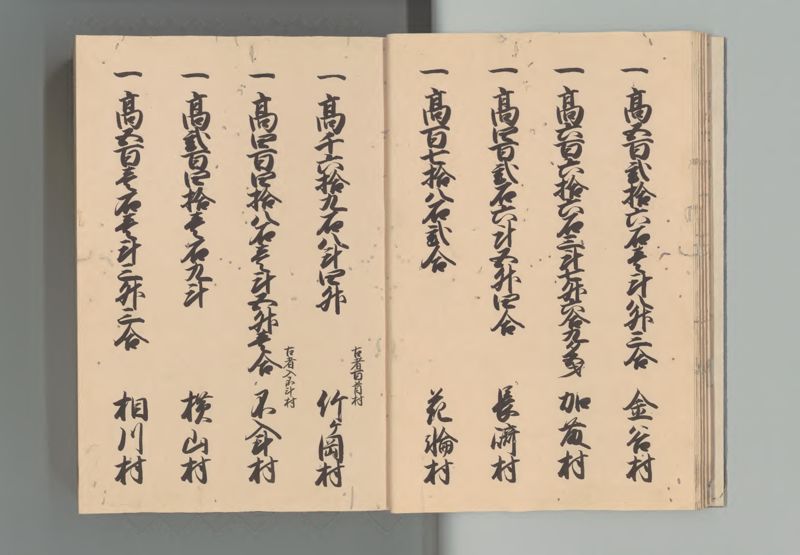 一 高五百弐拾六石壱斗八升三合 金谷村
一 高六百六拾六石三斗七升六合九夕 加藤村
一 高四百弐石六斗五升四合 長濟村
一 高百七拾八石弐合 花輪村
古者百首村
一 高千六拾九石八斗四升 竹ヶ岡村
古者入不斗村
一 高四百四拾八石壱斗五升壱合 不入斗村
一 高弐百四拾壱石九斗 横山村
一 高五百壱石壱斗三升三合 相川村